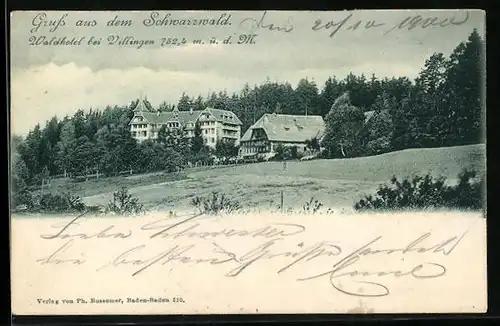 Gruß aus dem Schwarzwald.
Den 20/10 1900
Waldhotel bei Villingen 752,4 m. ü. d. M.
Liebe Schwester
die besten Grüße sendet
Emil
Verlag von Ph. Bussemer, Baden-Baden 510.